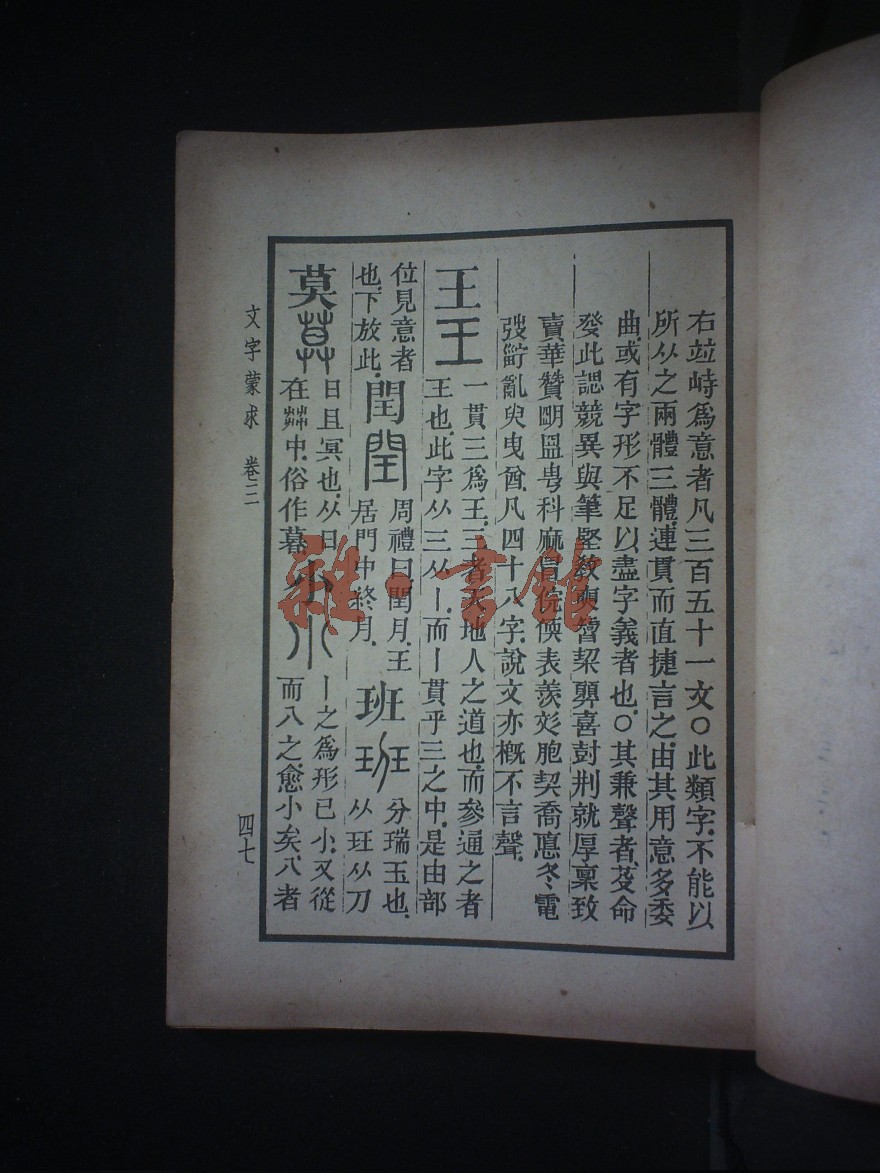 右竝峙爲意者凡三百五十一文○此類字不能以
所从之兩體三體連貫而直捷言之由其用意多委
曲或有字形不足以盡字義者也○其兼聲者芟命
發此認競異與筆堅教契羿喜尌荆就厚稟致
賣華贊朙科麻表羨彣胞契喬悳冬電
亂臾曳酋凡四十八字說文亦槪不言聲
王王
一貫三爲王三者天地人之道也而參通之者
王也此字从三从丨而丨貫乎三之中是由部
位見意者
也下放此
閏閏
周禮曰閏月王
居門中終月
班班
分瑞玉也
从玨从刀
莫莫
日且冥也从日
在茻中俗作暮
小小
丨之爲形已小又從
而八之愈小矣八者
文字蒙求 卷三
四七
雜·書館